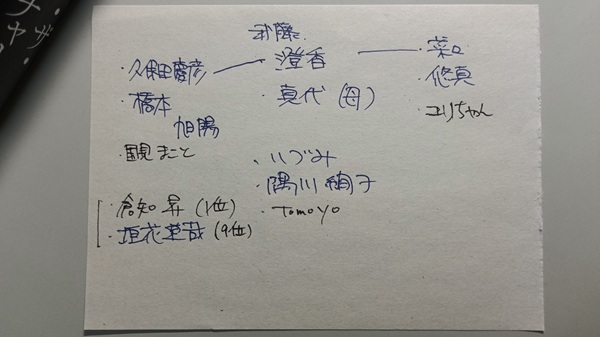 武藤
澄香
菜々
久保田慶彦
悠真
橋本
真代(母)
ユリちゃん
旭陽
國見まこと
いづみ
隅川絢子
Tomoyo
倉知昇(1位)
垣花亜哉(9位)
ナ
ヤザ